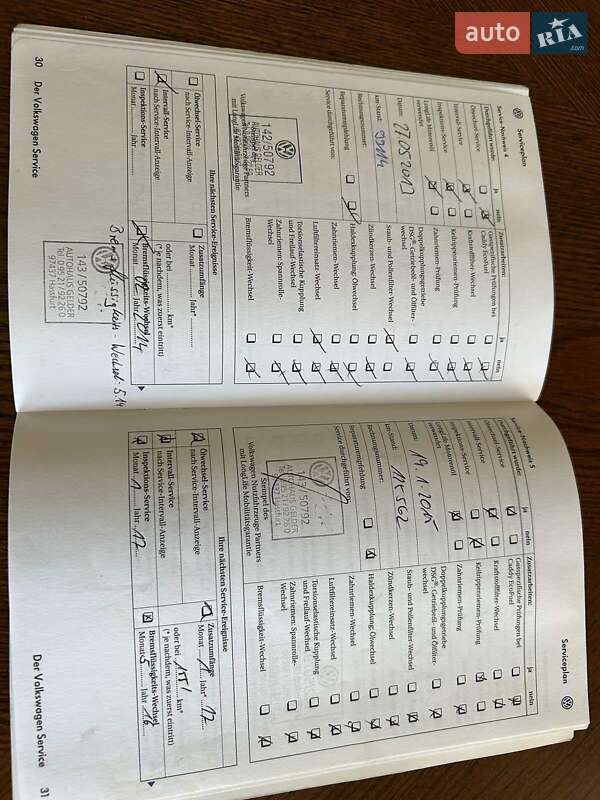 auto RIA.com
30 Der Volkswagen Service
Serviceplan
Service-Nachweis 4
Durchgeführt wurde:
ja
nein
Ölwechsel-Service
Intervall-Service
Inspektions-Service
LongLife Motorenöl
verwendet
Datum: 27.05.2013
km-Stand: 99114
Rechnungsnummer:
Reparaturempfehlung
Service durchgeführt von:
142/50792
AUTOHAUS GELDER
Volkswagen Nutzfahrzeuge Partners
mit LongLife Mobilitätsgarantie
Zusatzarbeiten:
ja
nein
Gasspezifische Prüfungen bei
Caddy EcoFuel
Kraftstofffilter-Wechsel
Keilrippenriemen-Prüfung
Zahnriemen-Prüfung
Doppelkupplungsgetriebe
DSG®: Getriebeöl- und Ölfilter-
wechsel
Staub- und Pollenfilter-Wechsel
Zündkerzen-Wechsel
Haldexkupplung: Ölwechsel
Zahnriemen-Wechsel
Luftfiltereinsatz-Wechsel
Torsionselastische Kupplung
und Freilauf-Wechsel
Zahnriemen: Spannrolle-
Wechsel
Bremsflüssigkeits-Wechsel
Ihre nächsten Service-Ereignisse
Ölwechsel-Service
nach Service-Intervall-Anzeige
Intervall-Service
nach Service-Intervall-Anzeige
Inspektions-Service
Monat Jahr
Zusatzumfänge
Monat Jahr*
oder bei km*
(* je nachdem, was zuerst eintritt)
Bremsflüssigkeits-Wechsel
Monat Jahr 2014
143/50792
AUTOHAUS GELDER
Tel. 09521/9276 0
97437 Hassfurt
Bremsflüssigkeits-Wechsel 5.14
Serviceplan
Service-Nachweis 5
Durchgeführt wurde:
ja
nein
Ölwechsel-Service
Intervall-Service
Inspektions-Service
LongLife Motorenöl
verwendet
Datum: 19.1.2015
km-Stand: 125562
Rechnungsnummer:
Reparaturempfehlung
Service durchgeführt von:
143/50792
AUTOHAUS GELDER
Stempel des
Volkswagen Nutzfahrzeuge Partners
mit LongLife Mobilitätsgarantie
Zusatzarbeiten:
ja
nein
Gasspezifische Prüfungen bei
Caddy EcoFuel
Kraftstofffilter-Wechsel
Keilrippenriemen-Prüfung
Zahnriemen-Prüfung
Doppelkupplungsgetriebe
DSG®: Getriebeöl- und Ölfilter-
wechsel
Staub- und Pollenfilter-Wechsel
Zündkerzen-Wechsel
Haldexkupplung: Ölwechsel
Zahnriemen-Wechsel
Luftfiltereinsatz-Wechsel
Torsionselastische Kupplung
und Freilauf-Wechsel
Zahnriemen: Spannrolle-
Wechsel
Bremsflüssigkeits-Wechsel
Ihre nächsten Service-Ereignisse
Ölwechsel-Service
nach Service-Intervall-Anzeige
Intervall-Service
nach Service-Intervall-Anzeige
Inspektions-Service
Monat 1 Jahr 17
Zusatzumfänge
Monat 1 Jahr* 17
oder bei 155 km*
(* je nachdem, was zuerst eintritt)
Bremsflüssigkeits-Wechsel
Monat 5 Jahr 16
Der Volkswagen Service 31